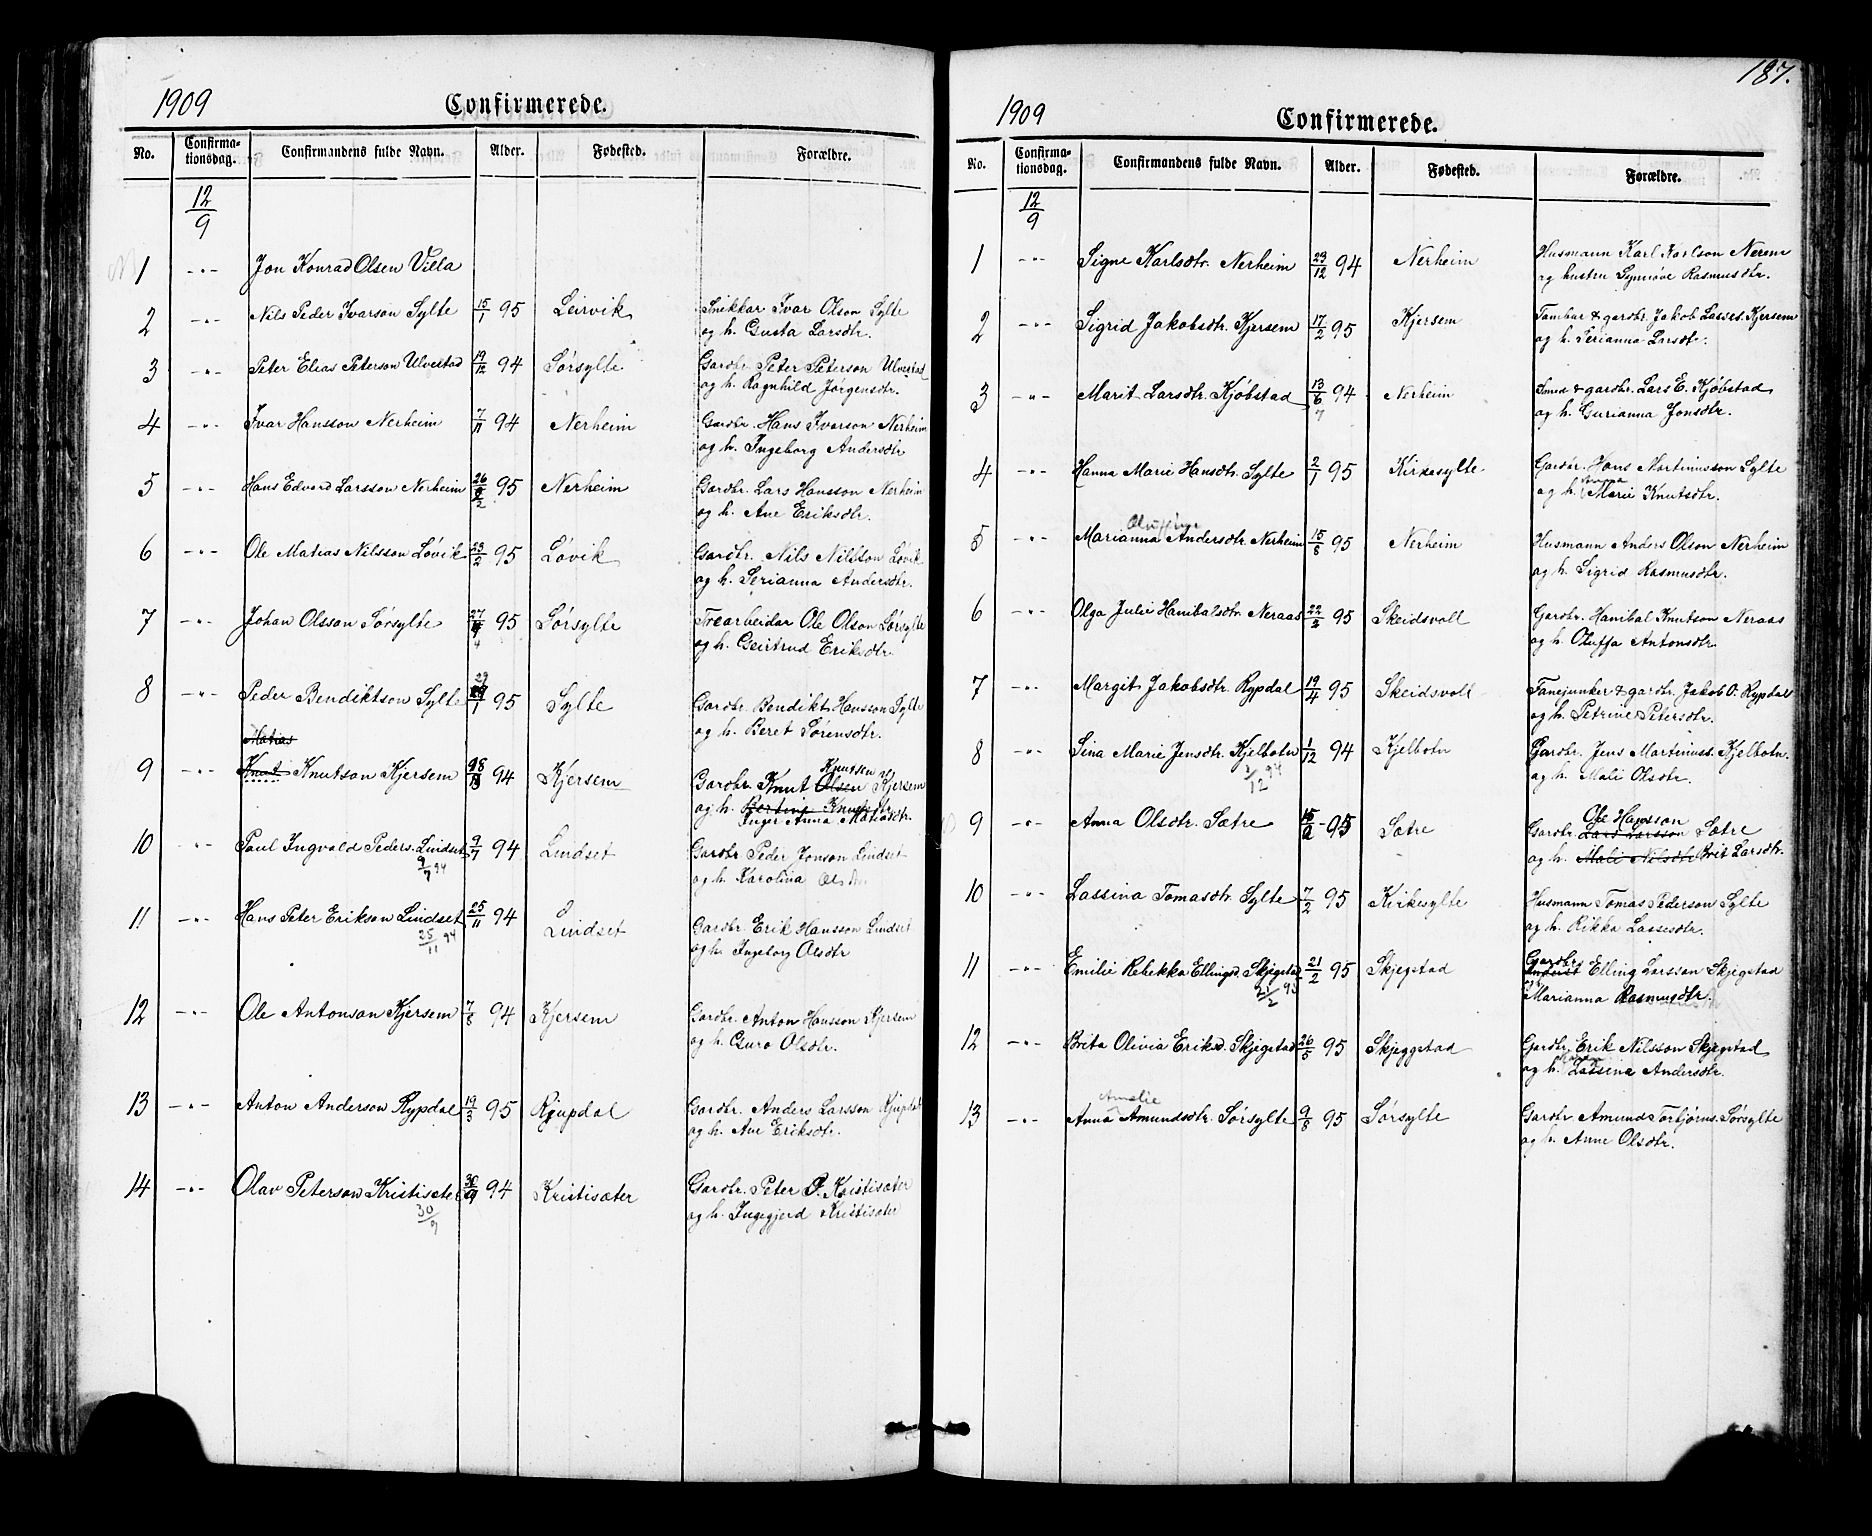 1909 Confirmerede.
No. Confirma-tionsdag. Confirmandens fulde Navn. Alder. Fødested. Forældre.
12/9
1 -"- Jon Konrad Olsen Villa
2 -"- Nils Peder Ivarson Sylte 15/1 95 Leirvik Snikkar Ivar Olson Sylte
og h. Gusta Larsdtr.
3 -"- Peter Elias Peterson Ulvestad 19/12 94 Sørsylte Gardbr. Peter Peterson Ulvestad
og h. Ragnhild Jørgensdtr.
4 -"- Ivar Hansson Nerheim 7/11 94 Nerheim Gardbr. Hans Ivarson Nerheim
og h. Ingeborg Andersdtr
5 -"- Hans Edvard Larsson Nerheim 26/2 95 Nerheim Gardbr. Lars Hansson Nerheim
og h. Ane Eriksdtr.
6 -"- Ole Matias Nilsson Løvik 23/2 95 Løvik Gardbr. Nils Nilsson Løvik
og h. Serianna Andersdtr.
7 -"- Johan Olsson Sørsylte 27/4 95 Sørsylte Trearbeidar Ole Olson Sørsylte
og h. Geirtrud Eriksdtr.
8 -"- Peder Bendiktson Sylte 29/1 95 Sylte Gardbr. Bendikt Hansson Sylte
og h. Beret Sørensdtr.
Matias
9 -"- Knut Knutson Kjersem 18/ 94 Kjersem Gardbr. Knut Olsen Knutsen Kjersem
og h. Bertine Knutsdtr
Inger Anna Matiasdtr.
10 -"- Paul Ingvald Peders. Lindset 9/7 94 Lindset Gardbr Peder Jonson Lindset
9/7 94
og h. Karolina Olsdtr.
11 -"- Hans Peter Erikson Lindset 25/11 94 Lindset Gardbr. Erik Hansson Lindset
25/11 94
og h. Ingeborg Olsdtr
12 -"- Ole Antonson Kjersem 7/8 94 Kjersem Gardbr Anton Hansson Kjersem
og h. Guro Olsdtr.
13 -"- Anton Anderson Rypdal 19/3 95 Rjupdal Gardbr. Anders Larsson Rjupdal
og h. Ane Eriksdtr.
14 -"- Olav Peterson Kristisæter 30/9 94 Kristisæter Gardbr. Peter O. Kristisæter
30/9
og h. Ingegjerd Kristisæter
187.
1909 Confirmerede.
No. Confirma-tionsdag. Confirmandens fulde Navn. Alder. Fødested. Forældre.
12/9
1 -"- Signe Karlsdtr. Nerheim 23/12 94 Nerheim Husmann Karl Karlson Nerem
og hustru Synnøve Rasmusdtr.
2 -"- Sigrid Jakobsdtr. Kjersem 17/2 95 Kjersem Tambur & gardbr. Jakob Lasses. Kjersem
og h. Serianna Larsdtr.
3 -"- Marit Larsdtr. Kjøbstad 13/6 94 Nerheim Smed & gardbr. Lars E. Kjøbstad
7
og h. Gurianna Jonsdtr.
4 -"- Hanna Marie Hansdtr. Sylte 2/1 95 Kirkesylte Gardbr. Hans Martinusson Sylte
og h. Marie Knutsdtr.
Oluffine
5 -"- Marianna Andersdtr. Nerheim 15/8 95 Nerheim Husmann Anders Olson Nerheim
og h. Sigrid Rasmusdtr.
6 -"- Olga Julie Hanibalsdtr. Neraas 22/2 95 Skeidsvoll Gardbr. Hanibal Knutson Neraas
og h. Oluffa Antonsdtr.
7 -"- Margit Jakobsdtr. Rypdal 19/4 95 Skeidsvoll Fanejunker & gardbr. Jakob O. Rypdal
og h. Petrine Petersdtr.
8 -"- Sina Marie Jensdtr. Kjelbotn 1/12 94 Kjelbotn Gardbr. Jens Martinuss. Kjelbotn.
1/12 94
og h. Mali Olsdtr.
9 -"- Anna Olsdtr. Sætre 15/2 95 Sætre Gardbr. Lars Larsson Ole Hansson Sætre
og h. Mali Nilsdtr Brit Larsdtr.
10 -"- Lassina Tomasdtr. Sylte 7/2 95 Kirkesylte Husmann Tomas Pederson Sylte
og h. Rikka Lassesdtr.
11 -"- Emilie Rebekka Ellingsd. Skjegstad 21/2 95 Skjegstad Gardbr. Elling Larsson Skjegstad
21/2 95
og h. Marianna Rasmusdtr.
12 -"- Brita Olivia Eriksd. Skjegstad 26/5 95 Skjeggstad Gardbr. Erik Nilsson Skjegstad
og h. Lassina Andersdtr.
Amalie
13 -"- Anna Amundsdtr. Sørsylte 9/8 95 Sørsylte Gardbr Amund Torbjørns. Sørsylte
og h. Anne Olsdtr.